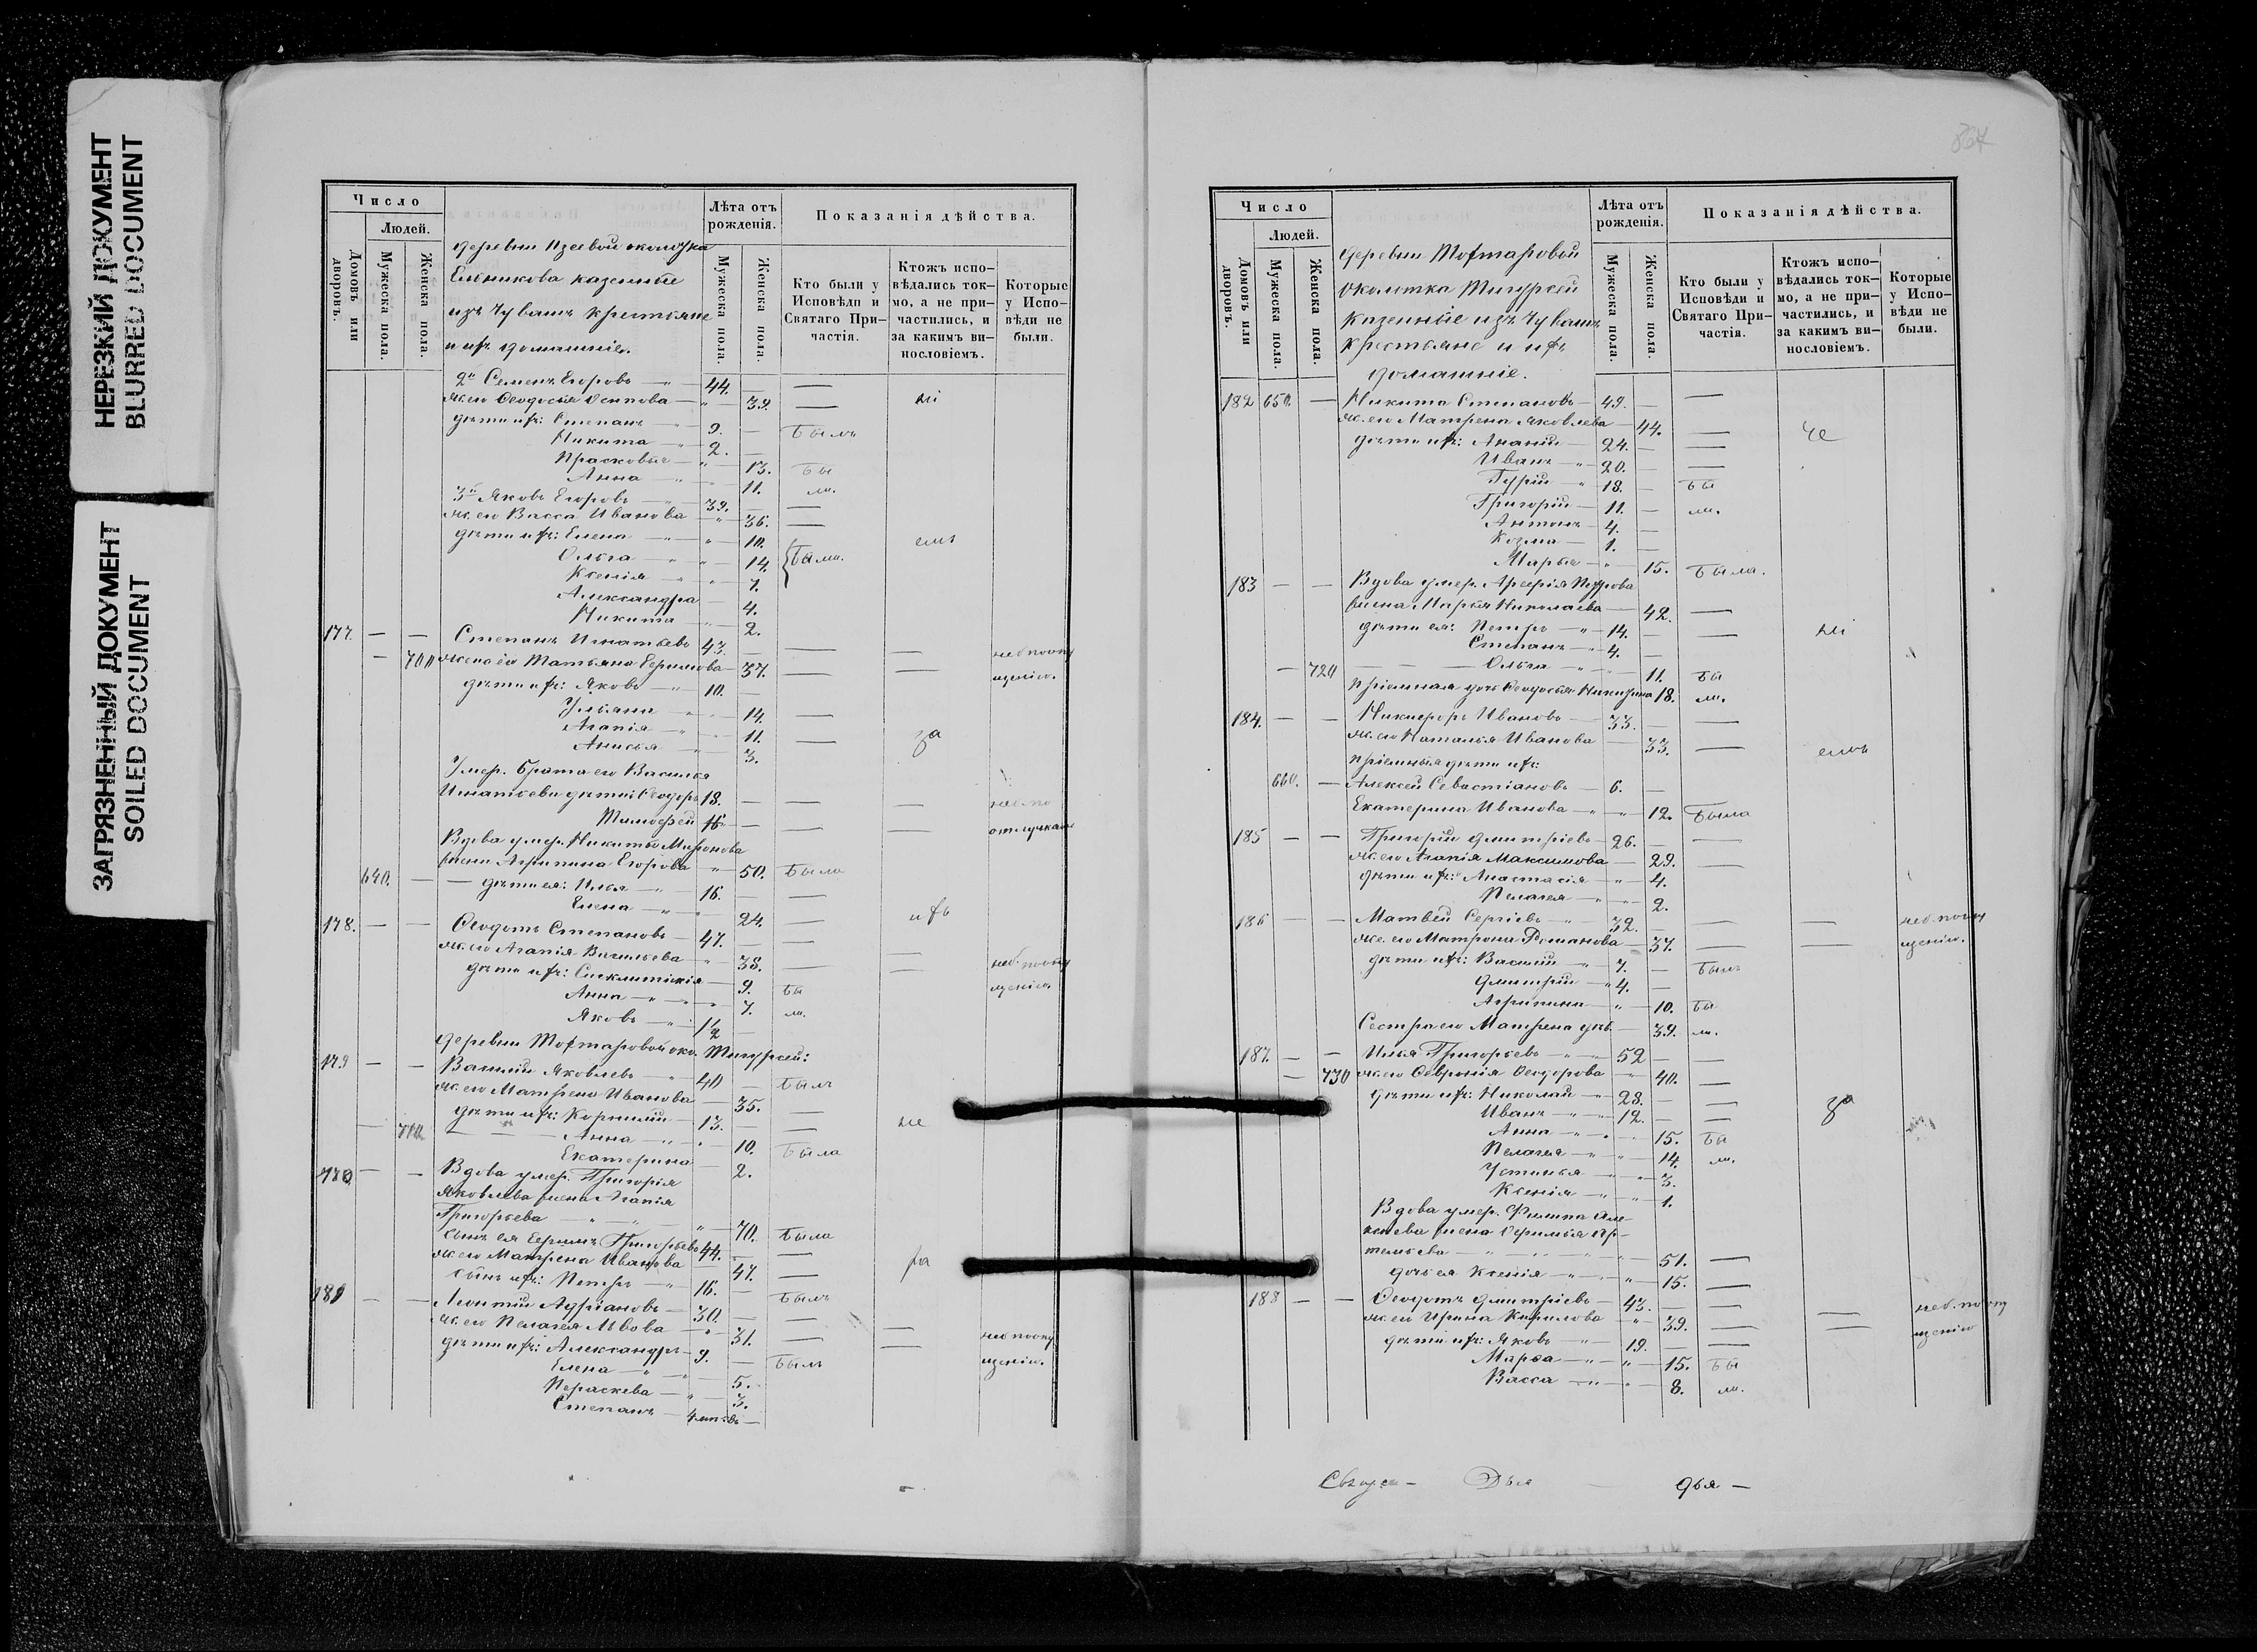 НЕРЕЗКИЙ ДОКУМЕНТ
BLURRED DOCUMENT
ЗАГРЯЗНЕННЫЙ ДОКУМЕНТ
SOILED DOCUMENT
Число
Людей.
Домовъ или дворовъ.
Мужеска пола.
Женска пола.
деревни Изеевой околотка
Ельникова казенные
изъ Чувашъ крестьяне
и ихъ домашніе.
Лѣта отъ рожденія.
Мужеска пола.
Женска пола.
Показанія дѣйства.
Кто были у Исповѣди и Святаго Причастія.
Ктожъ исповѣдались токмо, а не причастились, и за какимъ винословіемъ.
Которые у Исповѣди не были.
2й Семенъ Егоровъ — 44. —
ж. его Ѳеодосья Осипова — 39. —
дѣти ихъ: Степанъ — 9. — Былъ
Никита — 2. —
Прасковья — 13. Бы
Анна — 11. ли.
3й Яковъ Егоровъ — 39. —
ж. его Васса Иванова — 36. —
дѣти ихъ: Елена — 10.
Ольга — 14. Были.
Ксенія — 7.
Александра — 4.
Никита — 2.
177. — — Степанъ Игнатьевъ 43. — —
— 700 жена его Татьяна Ефимова — 37. — —
дѣти ихъ: Яковъ — 10. —
Ульяна — 14. —
Агапія — 11. — за
Анисья — 3.
Умер. брата его Василья
Игнатьева дѣти: Ѳеодоръ 18. — — —
Тимоѳей 15 — — — отлучкамъ
Вдова умер. Никиты Миронова
жена Агрипина Егорова — 50. Была
640. — дѣти ея: Илья — 16. —
Елена — 24. — ихъ
178. — — Ѳеодотъ Степановъ — 47. — —
ж. его Агапія Васильева — 38. — —
дѣти ихъ: Синклитикія — 9. Бы
Анна — 7. ли.
Яковъ — 1/2 —
деревни Тохтаровой око. Тигурсей:
179 — — Василій Яковлевъ — 40 — Былъ
ж. его Матрена Иванова — 35. —
дѣти ихъ: Корнилій — 13. — — не
— 710 — Анна — 10. Была
Екатерина — 2.
180 — — Вдова умер. Григорія
Яковлева жена Агапія
Григорьева — 70. Была
сынъ ея Ефимъ Григорьевъ 44. — —
ж. его Матрена Иванова 47. — ра
сынъ ихъ: Петръ — 16. — Былъ
181 — — Леонтій Адріановъ — 30. — —
ж. его Пелагея Львова — 31. — —
дѣти ихъ: Александръ — 9. — Былъ
Елена — 5.
Параскева — 3.
Степанъ —
Число
Людей.
Домовъ или дворовъ.
Мужеска пола.
Женска пола.
деревни Тохтаровой
околотка Тигурсей
казенные изъ Чувашъ
крестьяне и ихъ
домашніе.
Лѣта отъ рожденія.
Мужеска пола.
Женска пола.
Показанія дѣйства.
Кто были у Исповѣди и Святаго Причастія.
Ктожъ исповѣдались токмо, а не причастились, и за какимъ винословіемъ.
Которые у Исповѣди не были.
182 650. — Никита Степановъ — 49. — —
ж. его Матрена Яковлева — 44. —
дѣти ихъ: Ананій — 24. — —
Иванъ — 20. — —
Гурій — 18. — Бы
Григорій — 11. — ли.
Антонъ — 4. —
Козма — 1. —
Марья — 15. Была.
183 — — Вдова умер.
жена Марья Николаева — 42. —
дѣти ея: Петръ — 14. — —
Степанъ — 4. —
— 720 Ольга — 11. Бы
пріемная дочь Ѳеодосья 18. ли.
184. — — Никифоръ Ивановъ — 33. — —
ж. его Наталья Иванова — 33. —
пріемныя дѣти ихъ:
660. — Алексей Севастіановъ — 6. —
Екатерина Иванова — 12. Была
185 — — Григорій Дмитріевъ — 26. — —
ж. его Агапія Максимова — 29. —
дѣти ихъ: Анастасія — 4.
Пелагея — 2.
186 — — Матвей Сергіевъ — 32. — — —
же. его Матрона Романова — 37. — —
дѣти ихъ: Василій — 7. — Былъ
Дмитрій — 4. —
Агрипина — 10. Бы
Сестра его Матрена — 39. ли.
187. — — Илья Григорьевъ — 52 — —
— 730 ж. его Ѳеодорова — 40. —
дѣти ихъ: Николай — 28. — — за
Иванъ — 12. — —
Анна — 15. Бы
Пелагея — 14. ли.
Устинья — 3.
Ксенія — 1.
Вдова умер. Филипа Але-
ксѣева жена
— 51. —
дочь ея Ксенія — 15. —
188 — — Ѳеодотъ Дмитріевъ — 43. — — —
ж. его Ирина Кирилова — 39. — —
дѣти ихъ: Яковъ — 19. — —
Марѳа — 15. Бы
Васса — 8. ли.